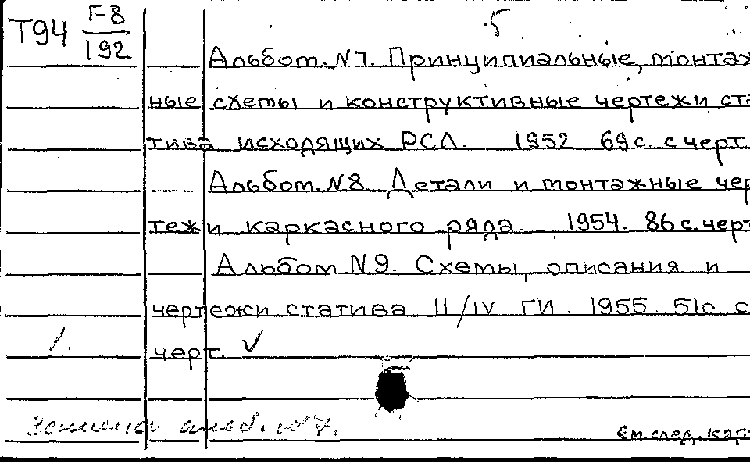 Т94 F-8/192
5
Альбом. N7. Принципиальные, монтаж
ные схемы и конструктивные чертежи ста
тива исходящих РСЛ. 1952 69 с. с черт.
Альбом. N8. Детали и монтажные чер
тежи каркасного ряда 1954. 86 с. черт
Альбом N9. Схемы, описания и
чертежи статива II/IV ГИ. 1955. 51с с
1. черт. √
См. след. кар